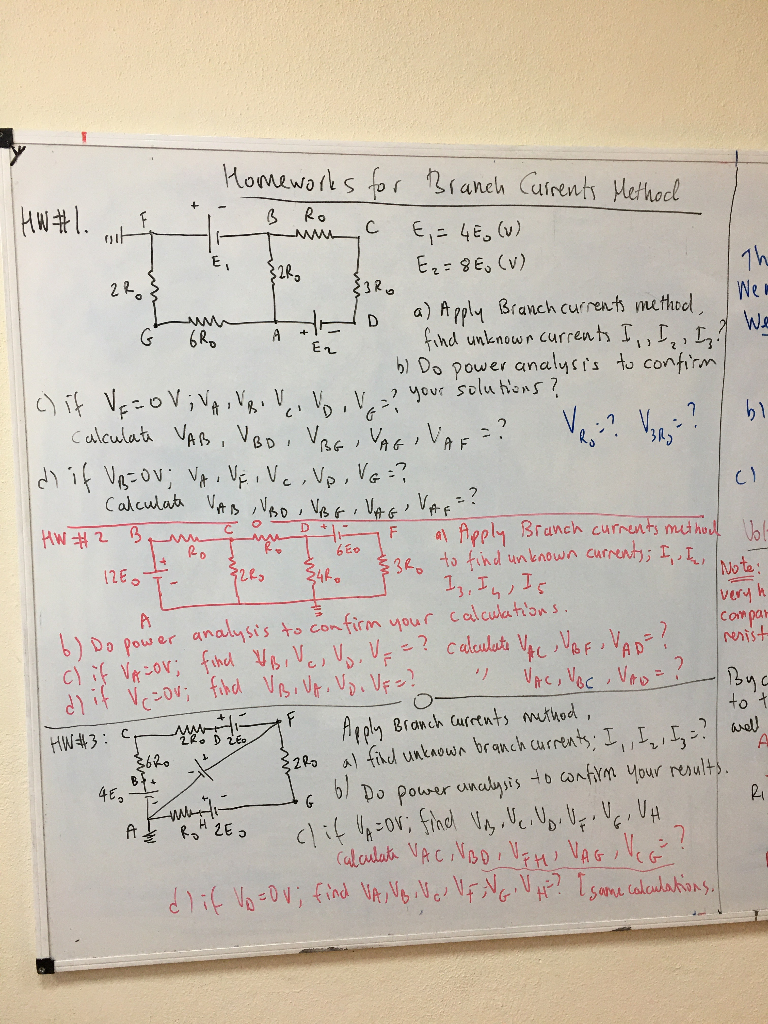 Homeworks for Branch Currents Method
HW#1.
F + - B R₀ C
E₁
2R₀ 2R₀ 3R₀
G 6R₀ A + - D
E₂
E₁ = 4E₀ (V)
E₂ = 8E₀ (V)
a) Apply Branch currents method,
find unknown currents I₁, I₂, I₃?
b) Do power analysis to confirm
your solutions?
c) if V_F=0V; V_A, V_B, V_C, V_D, V_G=?
Calculate V_AB, V_BD, V_BG, V_AG, V_AF=?
V_R₀=? V_3R₀=?
d) if V_B=0V; V_A, V_F, V_C, V_D, V_G=?
Calculate V_AB, V_BD, V_BG, V_AG, V_AF=?
HW#2 B C D + - F
R₀ R₀ 6E₀
12E₀ + - 2R₀ 4R₀ 3R₀
A
a) Apply Branch currents method
to find unknown currents; I₁, I₂,
I₃, I₄, I₅
b) Do power analysis to confirm your calculations.
c) if V_A=0V; find V_B, V_C, V_D, V_F=? calculate V_AC, V_BF, V_AD=?
d) if V_C=0V; find V_B, V_A, V_D, V_F=? " V_AC, V_BC, V_AD=?
HW#3: C 2R₀ D + - 2E₀ F
6R₀ 2R₀
B +
4E₀ -
A R₀ H 2E₀ G
Apply Branch currents method,
a) find unknown branch currents; I₁, I₂, I₃=?
b) Do power analysis to confirm your results.
c) if V_A=0V; find V_B, V_C, V_D, V_F, V_G, V_H
Calculate V_AC, V_BD, V_FH, V_AG, V_CG=?
d) if V_D=0V; find V_A, V_B, V_C, V_F, V_G, V_H=? ↑ same calculations.
Th
We
b)
c)
Note:
very h
compar
resist
By c
to t
well
A
R₁